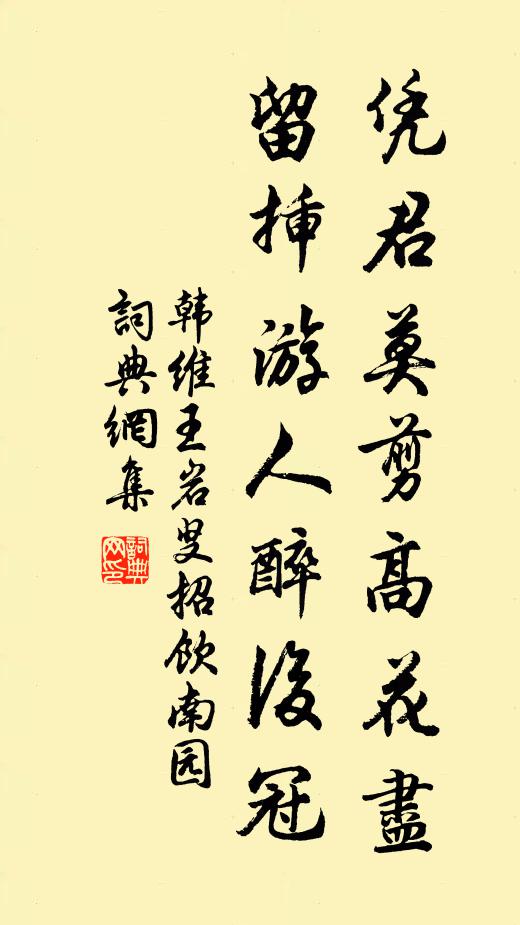 凭君莫剪高花盡
留挿游人醉後冠
韩维王岩叟招饮南园
詞典網集
詞典
网印